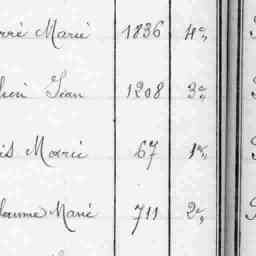 rré Marie 1836 4e
Jean 1208 3e
is Marie 67 1e
laume Marie 711 2e